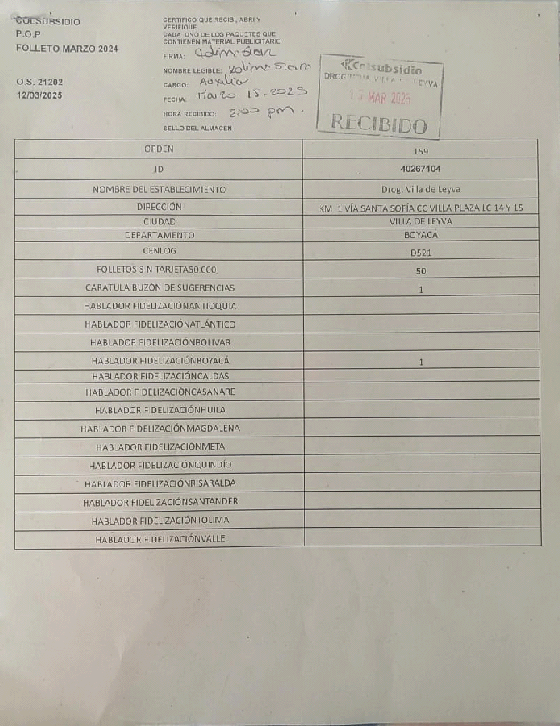 COLSUBSIDIO
P.O.P
FOLLETO MARZO 2024
O.S. 21202
12/03/2025
CERTIFICO QUE RECIBI, ABRI Y
VERIFIQUE
CADA UNO DE LOS PAQUETES QUE
CONTIENEN MATERIAL PUBLICITARIO
FIRMA:
NOMBRE LEGIBLE:
CARGO: Auxiliar
FECHA: Marzo 15.2025
HORA RECIBIDO: 2:00 pm.
SELLO DEL ALMACEN
Colsubsidio
DROGUERIA VILLA DE LEYVA
MAR 2025
RECIBIDO
ORDEN 159
ID 40267104
NOMBRE DEL ESTABLECIMIENTO Drog. Villa de Leyva
DIRECCIÓN VÍA SANTA SOFÍA CC VILLA PLAZA LC 14 Y 15
CIUDAD VILLA DE LEYVA
DEPARTAMENTO BOYACA
CENLOG D521
FOLLETOS SIN TARJETAS 50
CARATULA BUZON DE SUGERENCIAS 1
HABLADOR FIDELIZACIÓNANTIOQUIA
HABLADOR FIDELIZACIÓNATLÁNTICO
HABLADOR FIDELIZACIÓNBOLIVAR
HABLADOR FIDELIZACIÓNBOYACÁ 1
HABLADOR FIDELIZACIÓNCALDAS
HABLADOR FIDELIZACIÓNCASANARE
HABLADOR FIDELIZACIÓNHUILA
HABLADOR FIDELIZACIÓNMAGDALENA
HABLADOR FIDELIZACIÓNMETA
HABLADOR FIDELIZACIÓNQUINDÍO
HABLADOR FIDELIZACIÓNRISARALDA
HABLADOR FIDELIZACIÓNSANTANDER
HABLADOR FIDELIZACIÓNTOLIMA
HABLADOR FIDELIZACIÓNVALLE